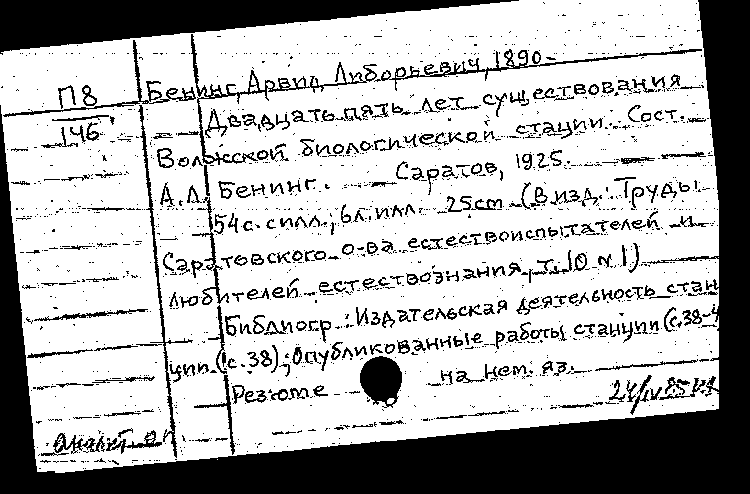 П8
146
Бенинг, Арвид Либорьевич, 1890-
Двадцать пять лет существования
Волжской биологической стации. Сост.
А.Л. Бенинг. Саратов, 1925.
54с. с илл.; 6л. илл. 25cm (В изд.: Труды
Саратовского о-ва естествоиспытателей и
любителей естествознания, т. 10 N 1)
Библиогр.: Издательская деятельность стан
ции (с. 38); Опубликованные работы станции (с. 38-4
Резюме на нем. яз.
аналит. оп.